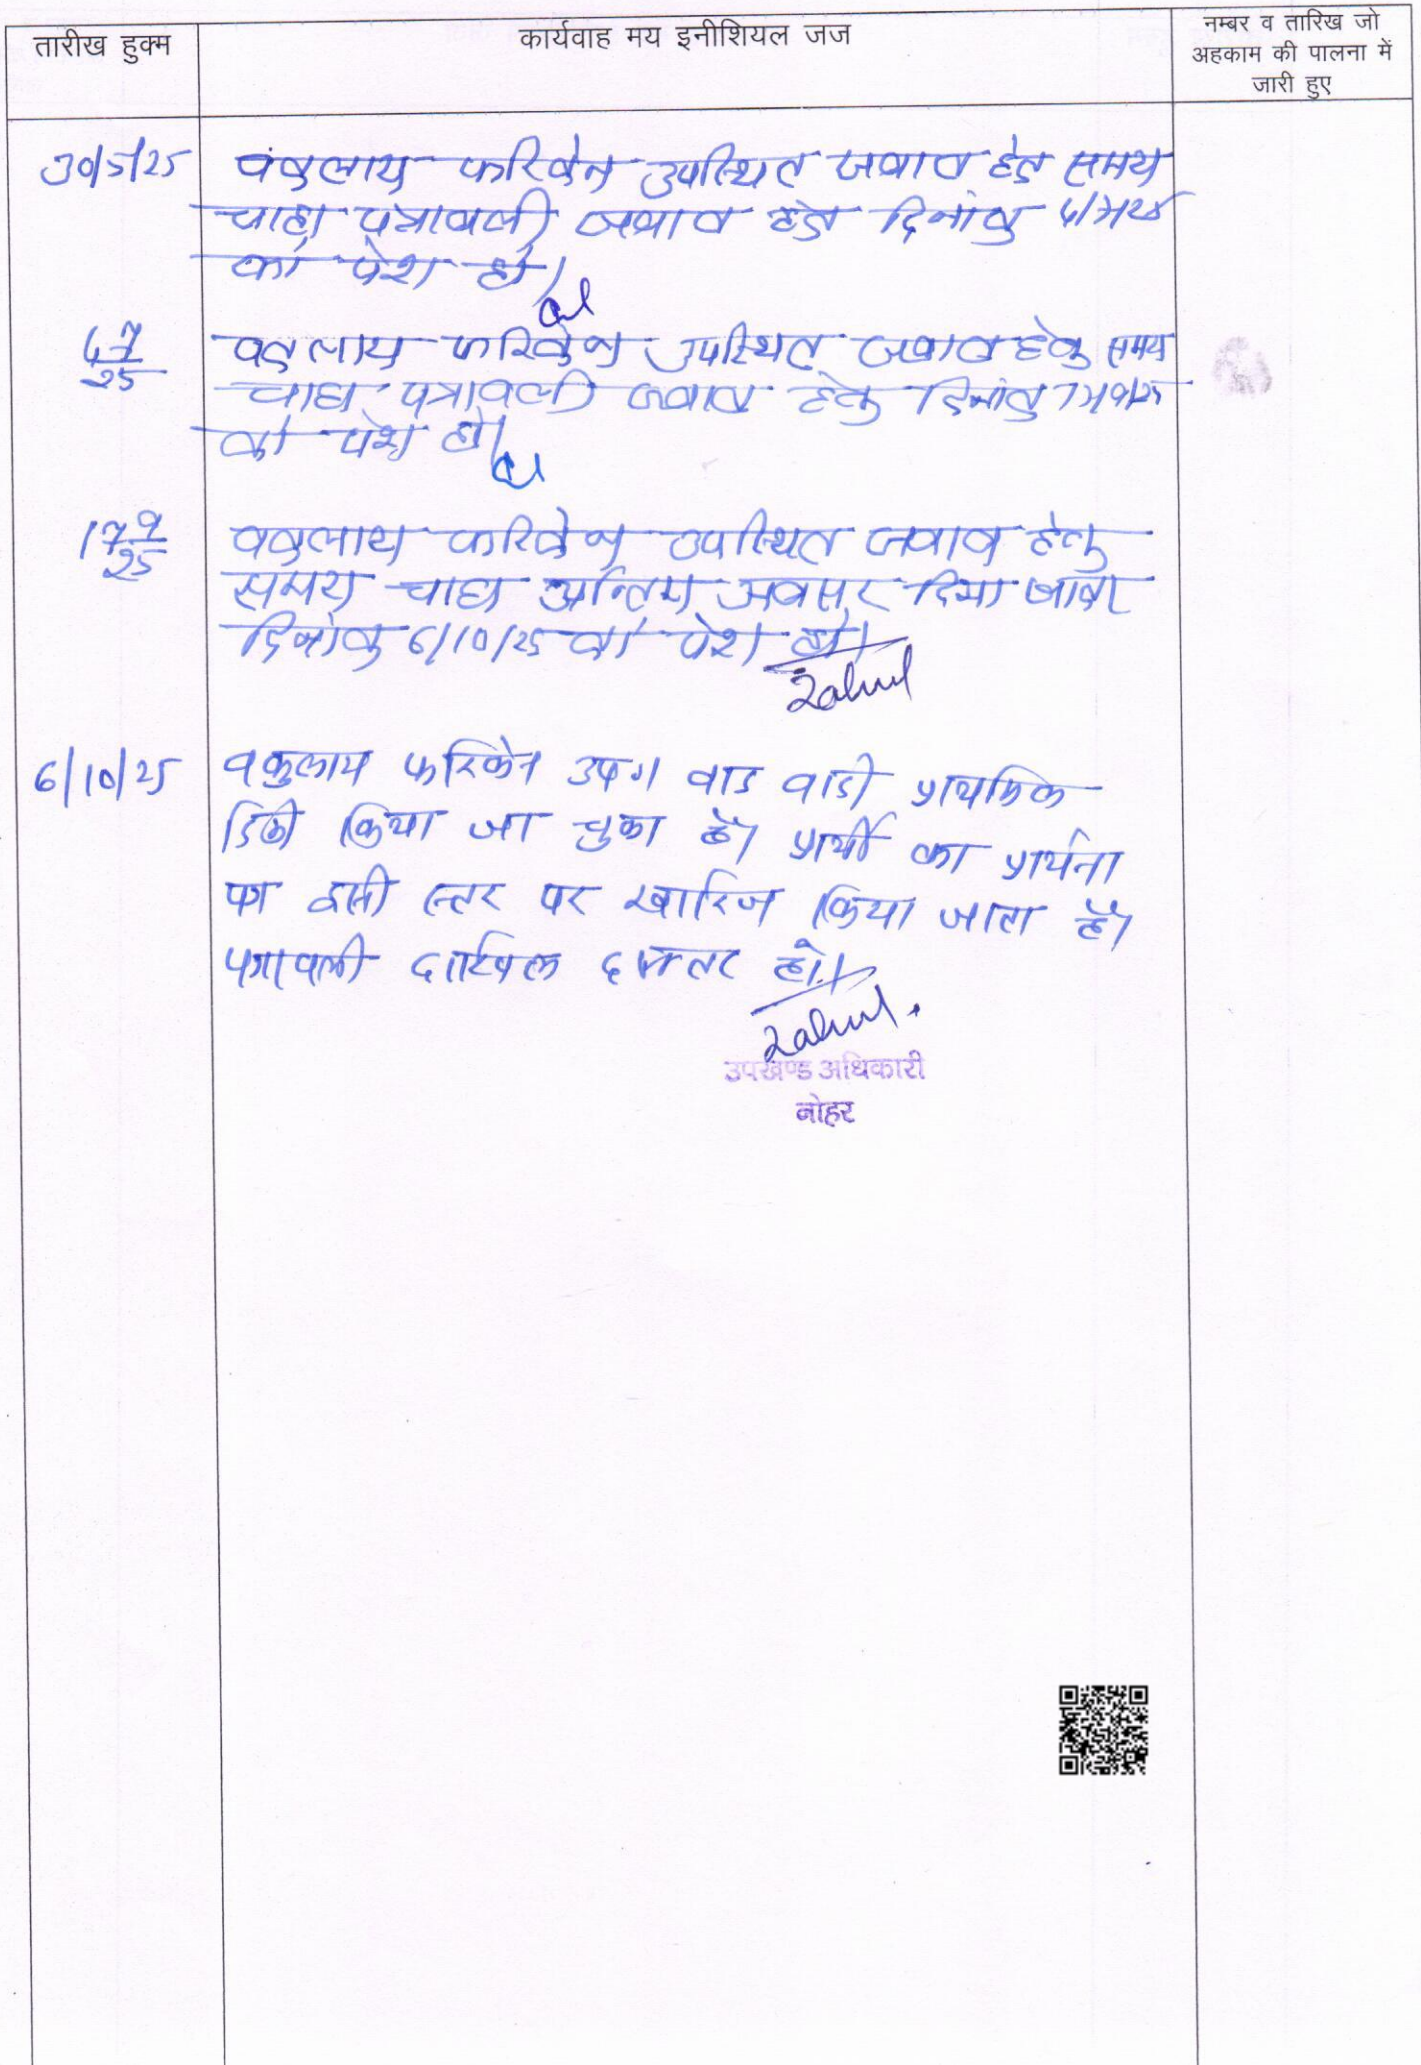 तारीख हुक्म
कार्यवाह मय इनीशियल जज
नम्बर व तारिख जो
अहकाम की पालना में
जारी हुए
30/5/25
वकुलाय फरिकेन उपस्थित जवाब हेतु समय
चाहा पत्रावली जवाब हेतु दिनांक
को पेश हो।
वकुलाय फरिकेन उपस्थित जवाब हेतु समय
चाहा पत्रावली जवाब हेतु दिनांक 17/9/25
को पेश हो।
17 9
25
वकुलाय फरिकेन उपस्थित जवाब हेतु
समय चाहा अन्तिम अवसर दिया जाकर
दिनांक 6/10/25 को पेश हो।
Rahul
6/10/25
वकुलाय फरिकेन उप० वाद वादी प्राथमिक
डिक्री किया जा चुका है। प्रार्थी का प्रार्थना
पत्र इसी स्तर पर खारिज किया जाता है।
पत्रावली दाखिल दफ्तर हो।
Rahul.
उपखण्ड अधिकारी
नोहर